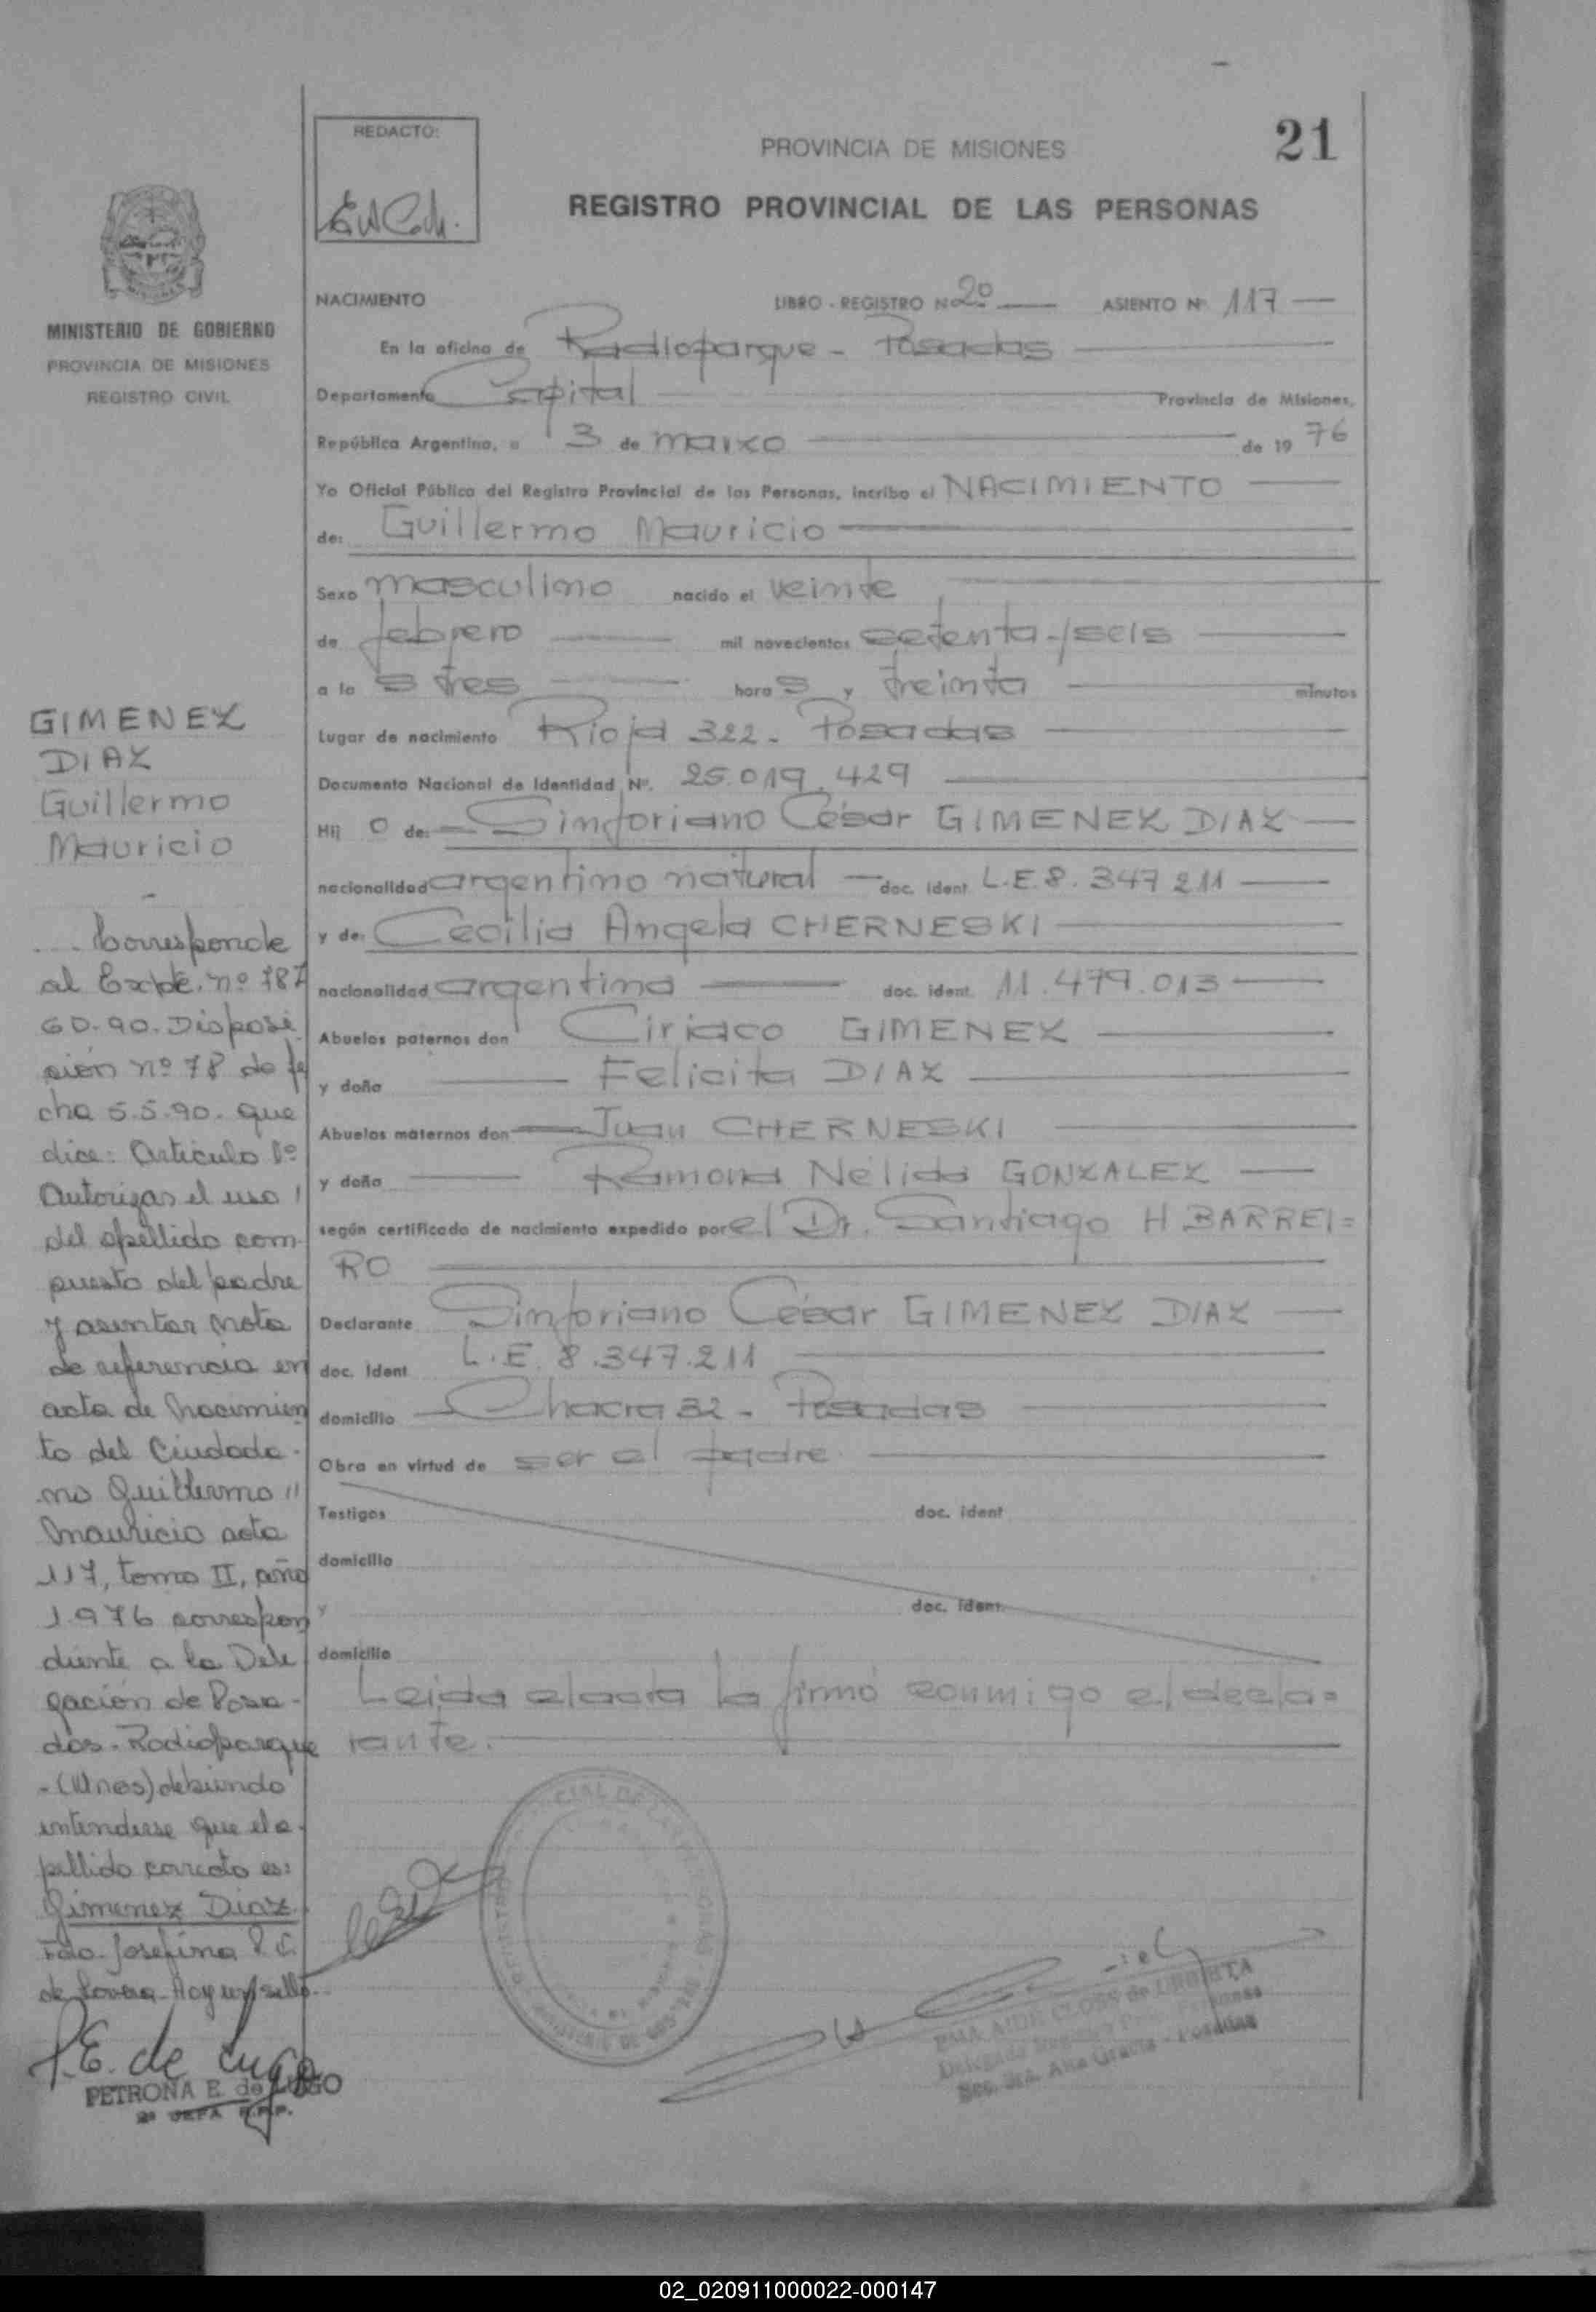 REDACTO:
PROVINCIA DE MISIONES
21
REGISTRO PROVINCIAL DE LAS PERSONAS
MINISTERIO DE GOBIERNO
PROVINCIA DE MISIONES
REGISTRO CIVIL
NACIMIENTO LIBRO - REGISTRO Nº 2º ASIENTO Nº 117
En la oficina de Radioparque - Posadas
Departamento Capital Provincia de Misiones,
República Argentina, a 3 de marzo de 1976
Yo Oficial Público del Registro Provincial de las Personas, incribo el NACIMIENTO
de: Guillermo Mauricio
Sexo masculino nacido el veinte
de febrero mil novecientos setenta y seis
a las tres horas y treinta minutos
Lugar de nacimiento Rioja 322 - Posadas
Documento Nacional de Identidad Nº. 25.019.429
Hijo de: Sinforiano César GIMENEZ DIAZ
nacionalidad argentino natural doc. ident. L.E. 8.347.211
y de: Cecilia Angela CHERNESKI
nacionalidad argentina doc. ident. 11.479.013
Abuelos paternos don Ciriaco GIMENEZ
y doña Felicita DIAZ
Abuelos maternos don Juan CHERNESKI
y doña Ramona Nélida GONZALEZ
según certificado de nacimiento expedido por el Dr. Santiago H BARREI=
RO
Declarante Sinforiano César GIMENEZ DIAZ
doc. ident L.E. 8.347.211
domicilio Chacra 32 - Posadas
Obra en virtud de ser el padre.
Testigos doc. ident
domicilio
y doc. ident.
domicilio
Leida el acta la firmó conmigo el decla=
rante.
GIMENEZ
DIAZ
Guillermo
Mauricio
Corresponde
al Expte. nº 787
60.90. Disposi
ción nº 78 de fe
cha 5.5.90. que
dice: Articulo 1º
Autorizar el uso
del apellido com-
puesto del padre
y asentar nota
de referencia en
acta de nacimien
to del Ciudada-
no Guillermo
Mauricio acta
117, tomo II, año
1976 correspon
diente a la Dele
gación de Posa-
das - Radioparque
- (Mnes) debiendo
entenderse que el a-
pellido correcto es:
Gimenez Diaz
Fdo. Josefina
de Hay un sello
P.E. de Lugo
PETRONA E. de LUGO
2ª JEFA R.P.P.
AIDE CLOSS de URRUTIA
Posadas
02_020911000022-000147